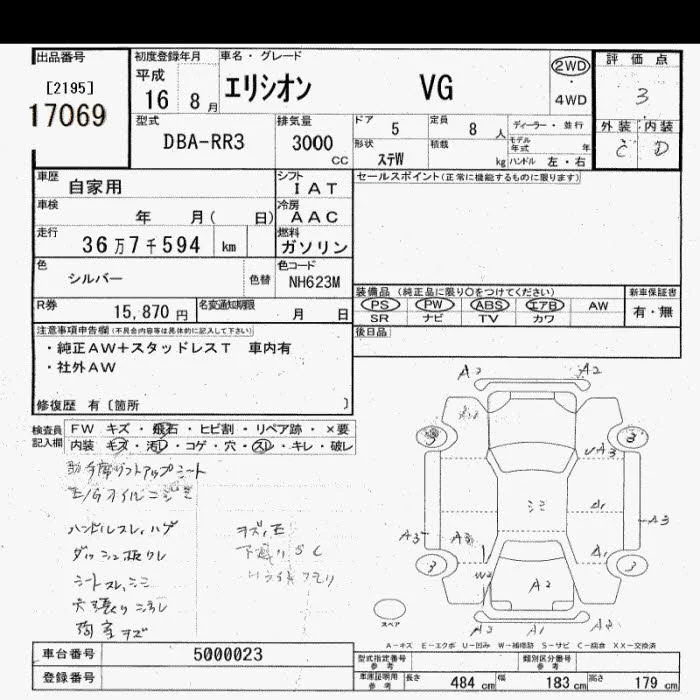 出品番号 初度登録年月 車名・グレード 評価点
[2195] 平成 エリシオン VG 2WD 3
17069 16 8月 4WD
型式 排気量 ドア 5 定員 8人 ディーラー・並行 外装 内装
DBA-RR3 3000 cc 形状 ステW 積載 kg モデル年式 年 ハンドル 左・右 C D
車歴 自家用 シフト IAT セールスポイント(正常に機能するものに限ります)
車検 年 月( 日) 冷房 AAC
走行 36万7千594 km 燃料 ガソリン
色 シルバー 色替 色コード NH623M
装備品 (純正品に限り○をつけてください) 新車保証書
R券 15,870円 名変通知期限 月 日 PS PW ABS エアB AW 有・無
SR ナビ TV カワ
注意事項申告欄(不具合内容等は具体的に記入して下さい) 後日品
・純正AW+スタッドレスT 車内有
・社外AW
修復歴 有〔箇所 〕
検査員記入欄 FW キズ・飛石・ヒビ割・リペア跡・×要
内装 キズ・汚レ・コゲ・穴・スレ・キレ・破レ
助手席リフトアップシート
E/Gオイルニジミ
ハンドルスレ、ハゲ
シートスレ、シミ
A2 A2
3 3
A3
シミ
A1
A3 A3 A3
A1
3 3
W2 A2
A2 A1 A2
スペア
A-キズ E-エクボ U-凹み W-補修跡 S-サビ C-腐食 XX-交換済
車台番号 5000023 型式指定番号 参考 類別区分番号 参考
登録番号 車庫証明用 参考 長さ 484 cm 幅 183 cm 高さ 179 cm